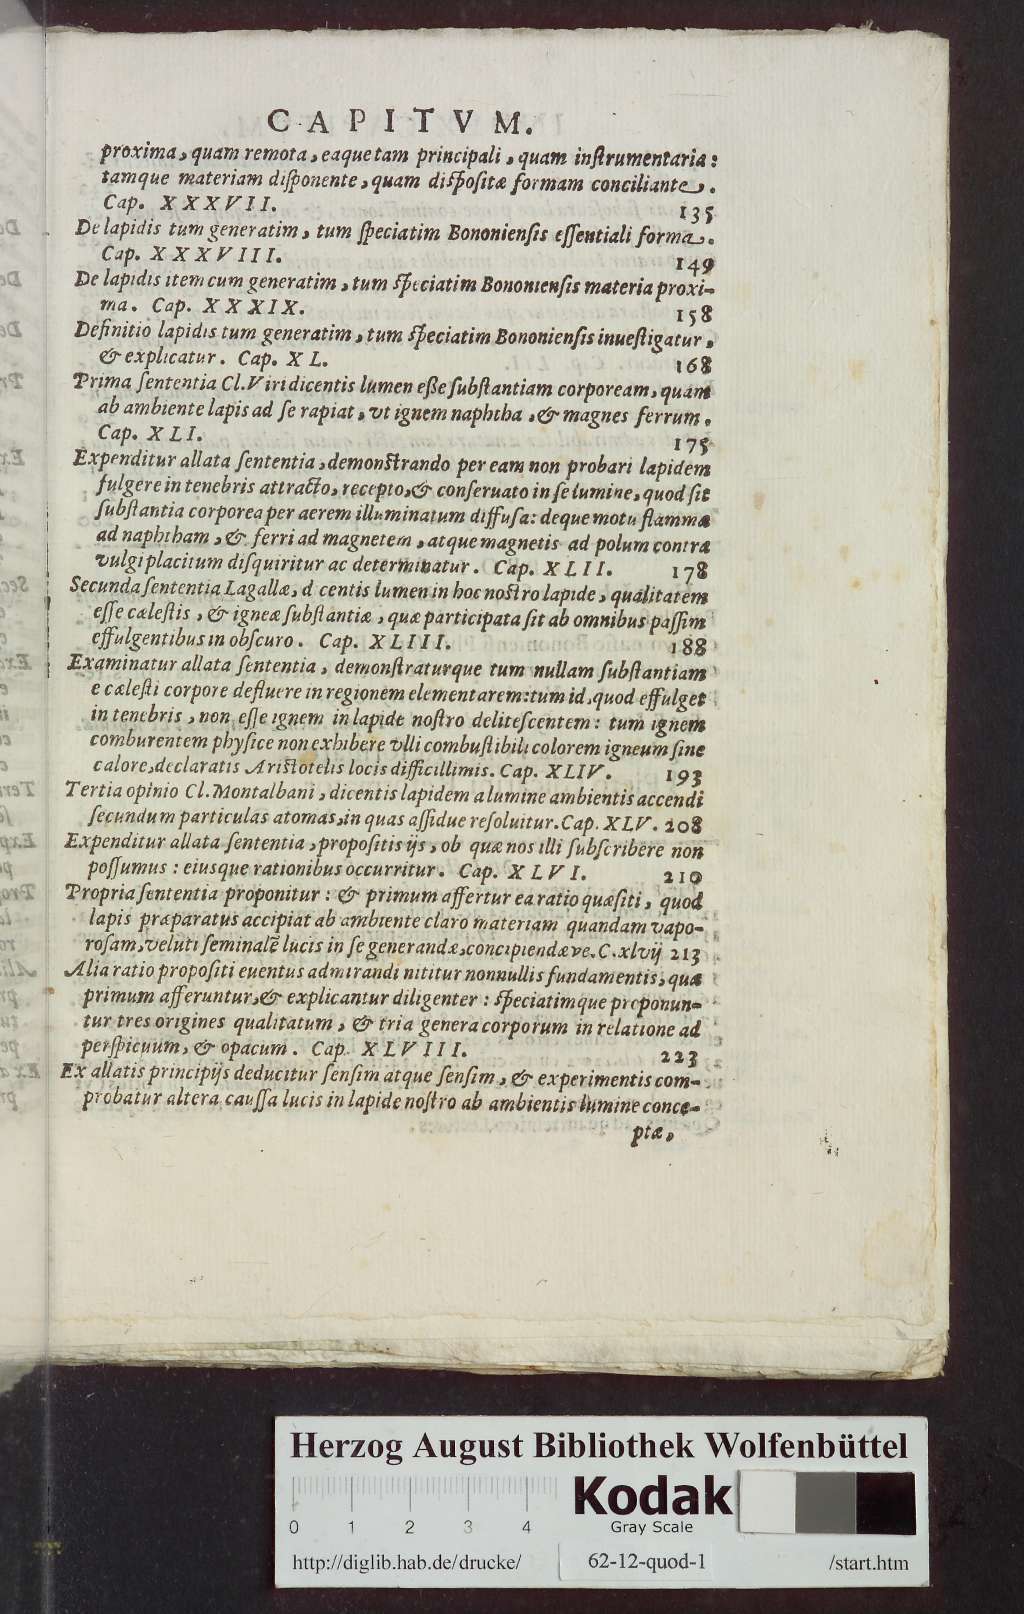 CAPITVM.
proxima, quam remota, eaque tam principali, quam instrumentaria:
tamque materiam disponente, quam dispositæ formam conciliante.
Cap. XXXVII. 135
De lapidis tum generatim, tum speciatim Bononiensis essentiali forma.
Cap. XXXVIII. 149
De lapidis item cum generatim, tum speciatim Bononiensis materia proxi-
ma. Cap. XXXIX. 158
Definitio lapidis tum generatim, tum speciatim Bononiensis inuestigatur,
& explicatur. Cap. XL. 168
Prima sententia Cl. Viri dicentis lumen eße substantiam corpoream, quam
ab ambiente lapis ad se rapiat, vt ignem naphtha, & magnes ferrum.
Cap. XLI. 175
Expenditur allata sententia, demonstrando per eam non probari lapidem
fulgere in tenebris attracto, recepto, & conseruato in se lumine, quod sit
substantia corporea per aerem illuminatum diffusa: deque motu flammæ
ad naphtham, & ferri ad magnetem, atque magnetis ad polum contra
vulgi placitum disquiritur ac determinatur. Cap. XLII. 178
Secunda sententia Lagallæ, d centis lumen in hoc nostro lapide, qualitatem
esse cælestis, & igneæ substantiæ, quæ participata sit ab omnibus passim
effulgentibus in obscuro. Cap. XLIII. 188
Examinatur allata sententia, demonstraturque tum nullam substantiam
e cælesti corpore defluere in regionem elementarem: tum id, quod effulget
in tenebris, non esse ignem in lapide nostro delitescentem: tum ignem
comburentem physice non exhibere vlli combustibili colorem igneum sine
calore, declaratis Aristotelis locis difficillimis. Cap. XLIV. 193
Tertia opinio Cl. Montalbani, dicentis lapidem a lumine ambientis accendi
secundum particulas atomas, in quas assidue resoluitur. Cap. XLV. 208
Expenditur allata sententia, propositis ijs, ob quæ nos illi subscribere non
possumus: eiusque rationibus occurritur. Cap. XLVI. 210
Propria sententia proponitur: & primum affertur ea ratio quæsiti, quod
lapis præparatus accipiat ab ambiente claro materiam quandam vapo-
rosam, veluti seminalē lucis in se generandæ, concipiendæve. C. xlvij 213
Alia ratio propositi euentus admirandi nititur nonnullis fundamentis, quæ
primum afferuntur, & explicantur diligenter: speciatimque proponun-
tur tres origines qualitatum, & tria genera corporum in relatione ad
perspicuum, & opacum. Cap. XLVIII. 223
Ex allatis principijs deducitur sensim atque sensim, & experimentis com-
probatur altera caussa lucis in lapide nostro ab ambientis lumine conce-
ptæ,
Herzog August Bibliothek Wolfenbüttel
Kodak
Gray Scale
0 1 2 3 4
http://diglib.hab.de/drucke/ 62-12-quod-1 /start.htm